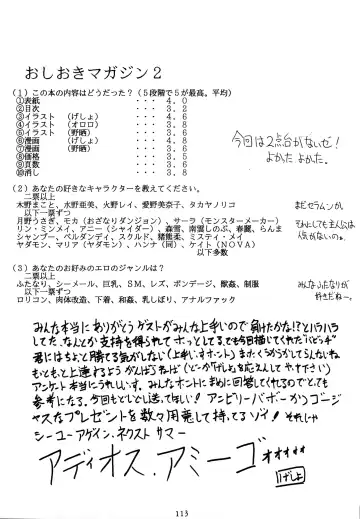 おしおきマガジン2
(1)この本の内容はどうだった?(5段階で5が最高。平均)
①表紙 ・・・ 4.0
②目次 ・・・ 3.2
③イラスト(げしょ) ・・・ 3.6
④イラスト(オロロ) ・・・ 3.8
⑤イラスト(野晒) ・・・ 3.6
⑥漫画(げしょ) ・・・ 4.8
⑦漫画(野晒) ・・・ 3.6
⑧価格 ・・・ 3.5
⑨頁数 ・・・ 3.6
⑩消し ・・・ 3.8
今回は2点台がないぜ!
よかった よかった。
(2)あなたの好きなキャラクターを教えてください。
二票以上
木野まこと、水野亜美、火野レイ、愛野美奈子、タカヤノリコ
以下一票ずつ
月野うさぎ、モカ(おざなりダンジョン)、サーラ(モンスターメーカー)
リン・ミンメイ、アニー(シャイダー)、森雪、南雲しのぶ、春麗、らんま
シャンプー、ベルダンディ、スクルド、猪熊柔、ミスティ・メイ
ヤダモン、マリア(ヤダモン)、ハンナ(同)、ケイト(NOVA)
以下多数
まだセラムンが、
それにしても主人公は
人気がないのぉ。
(3)あなたのお好みのエロのジャンルは?
二票以上
ふたなり、シーメール、巨乳、SM、レズ、ボンデージ、獣姦、制服
以下一票ずつ
ロリコン、肉体改造、下着、和姦、乳しぼり、アナルファック
みんなふたなりが
好きだね~。
みんな本当にありがとう ゲストがみんな上手いので負けたかな!?とハラハラ
してた。なんとか支持を得られてホッとしてる。でも今回描いてくれた
君にはちょと勝てる気がしない(上手い、ホント)またくやしがらしてもらいねい
もともと上達するどう がんばらねば(どーかげしょを応えんしてやって下さい)
アンケート本当にうれしいす。みんなホントにまめに回答してくれるのでとても
参考になる。今回もどしどし送ってほしい! アンビリーバボーからゴージ
ャスなプレゼントを数々用意して待てるゾイ! それじゃ
シーユーアゲイン、ネクスト サマー
アディオス.アミーゴォォォォ
げしょ
113